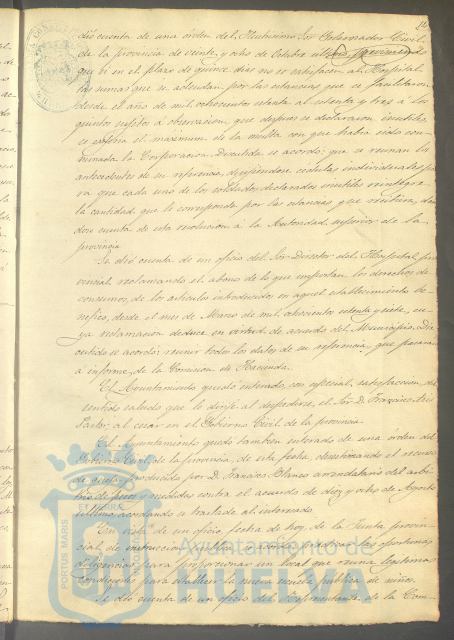 dió cuenta de una órden del Ilustrísimo Sor Gobernador Civil
de la provincia de veinte y ocho de Octubre último previniendo
que si en el plazo de quince dias no se satisfacen al Hospital
las sumas que se adeudan por las estancias que se facilitaron
desde el año de mil ochocientos setenta al setenta y tres á los
quintos sujetos á observacion, que despues se declararon inutiles
se exijiria el máximum de la multa con que habia sido con-
minada la Corporacion. Discutida se acordó: que se reunan los
antecedentes de su referencia, despidiendose cédulas individuales pa-
ra que cada uno de los soldados declarados inutiles reintegre
la cantidad que le corresponda por las estancias que
dose cuenta de esta resolucion á la Autoridad superior de la
provincia
Se dió cuenta de un oficio del Sor Director del Hospital pro-
vincial reclamando el abono de lo que importan los derechos de
consumos, de los articulos introducidos en aquel establecimiento be-
néfico, desde el mes de Marzo de mil ochocientos setenta y siete, cu-
ya reclamacion deduce en virtud de acuerdo del Municipio. Dis-
cutido se acordó; reunir todos los datos de su referencia, que pasaran
á informe de la Comision de Hacienda.
El Ayuntamiento quedó enterado, con especial satisfaccion, del
sentido saludo que le dirije al despedirse, el Sor D. Francisco
Pastor, al cesar en el Gobierno Civil de la provincia.
El Ayuntamiento quedó tambien enterado de una órden del
Gobierno Civil de la provincia, de esta fecha, desestimando el recurso
de queja producido por D. Francisco Blanco arrendatario del arbi-
trio de pesos y medidas contra el acuerdo de diez y ocho de Agosto
último, acordando se traslade al interesado.
En vista de un oficio, fecha de hoy, de la Junta provin-
cial de instruccion publica se acordó practicar las oportunas
diligencias para proporcionar un local que reuna legitimas
condiciones para establecer la nueva escuela publica de niños.
Se dió cuenta de un oficio del Representante de la Com-
PORTUS MARIS
ET TERRÆ
Ayuntamiento de
HUELVA